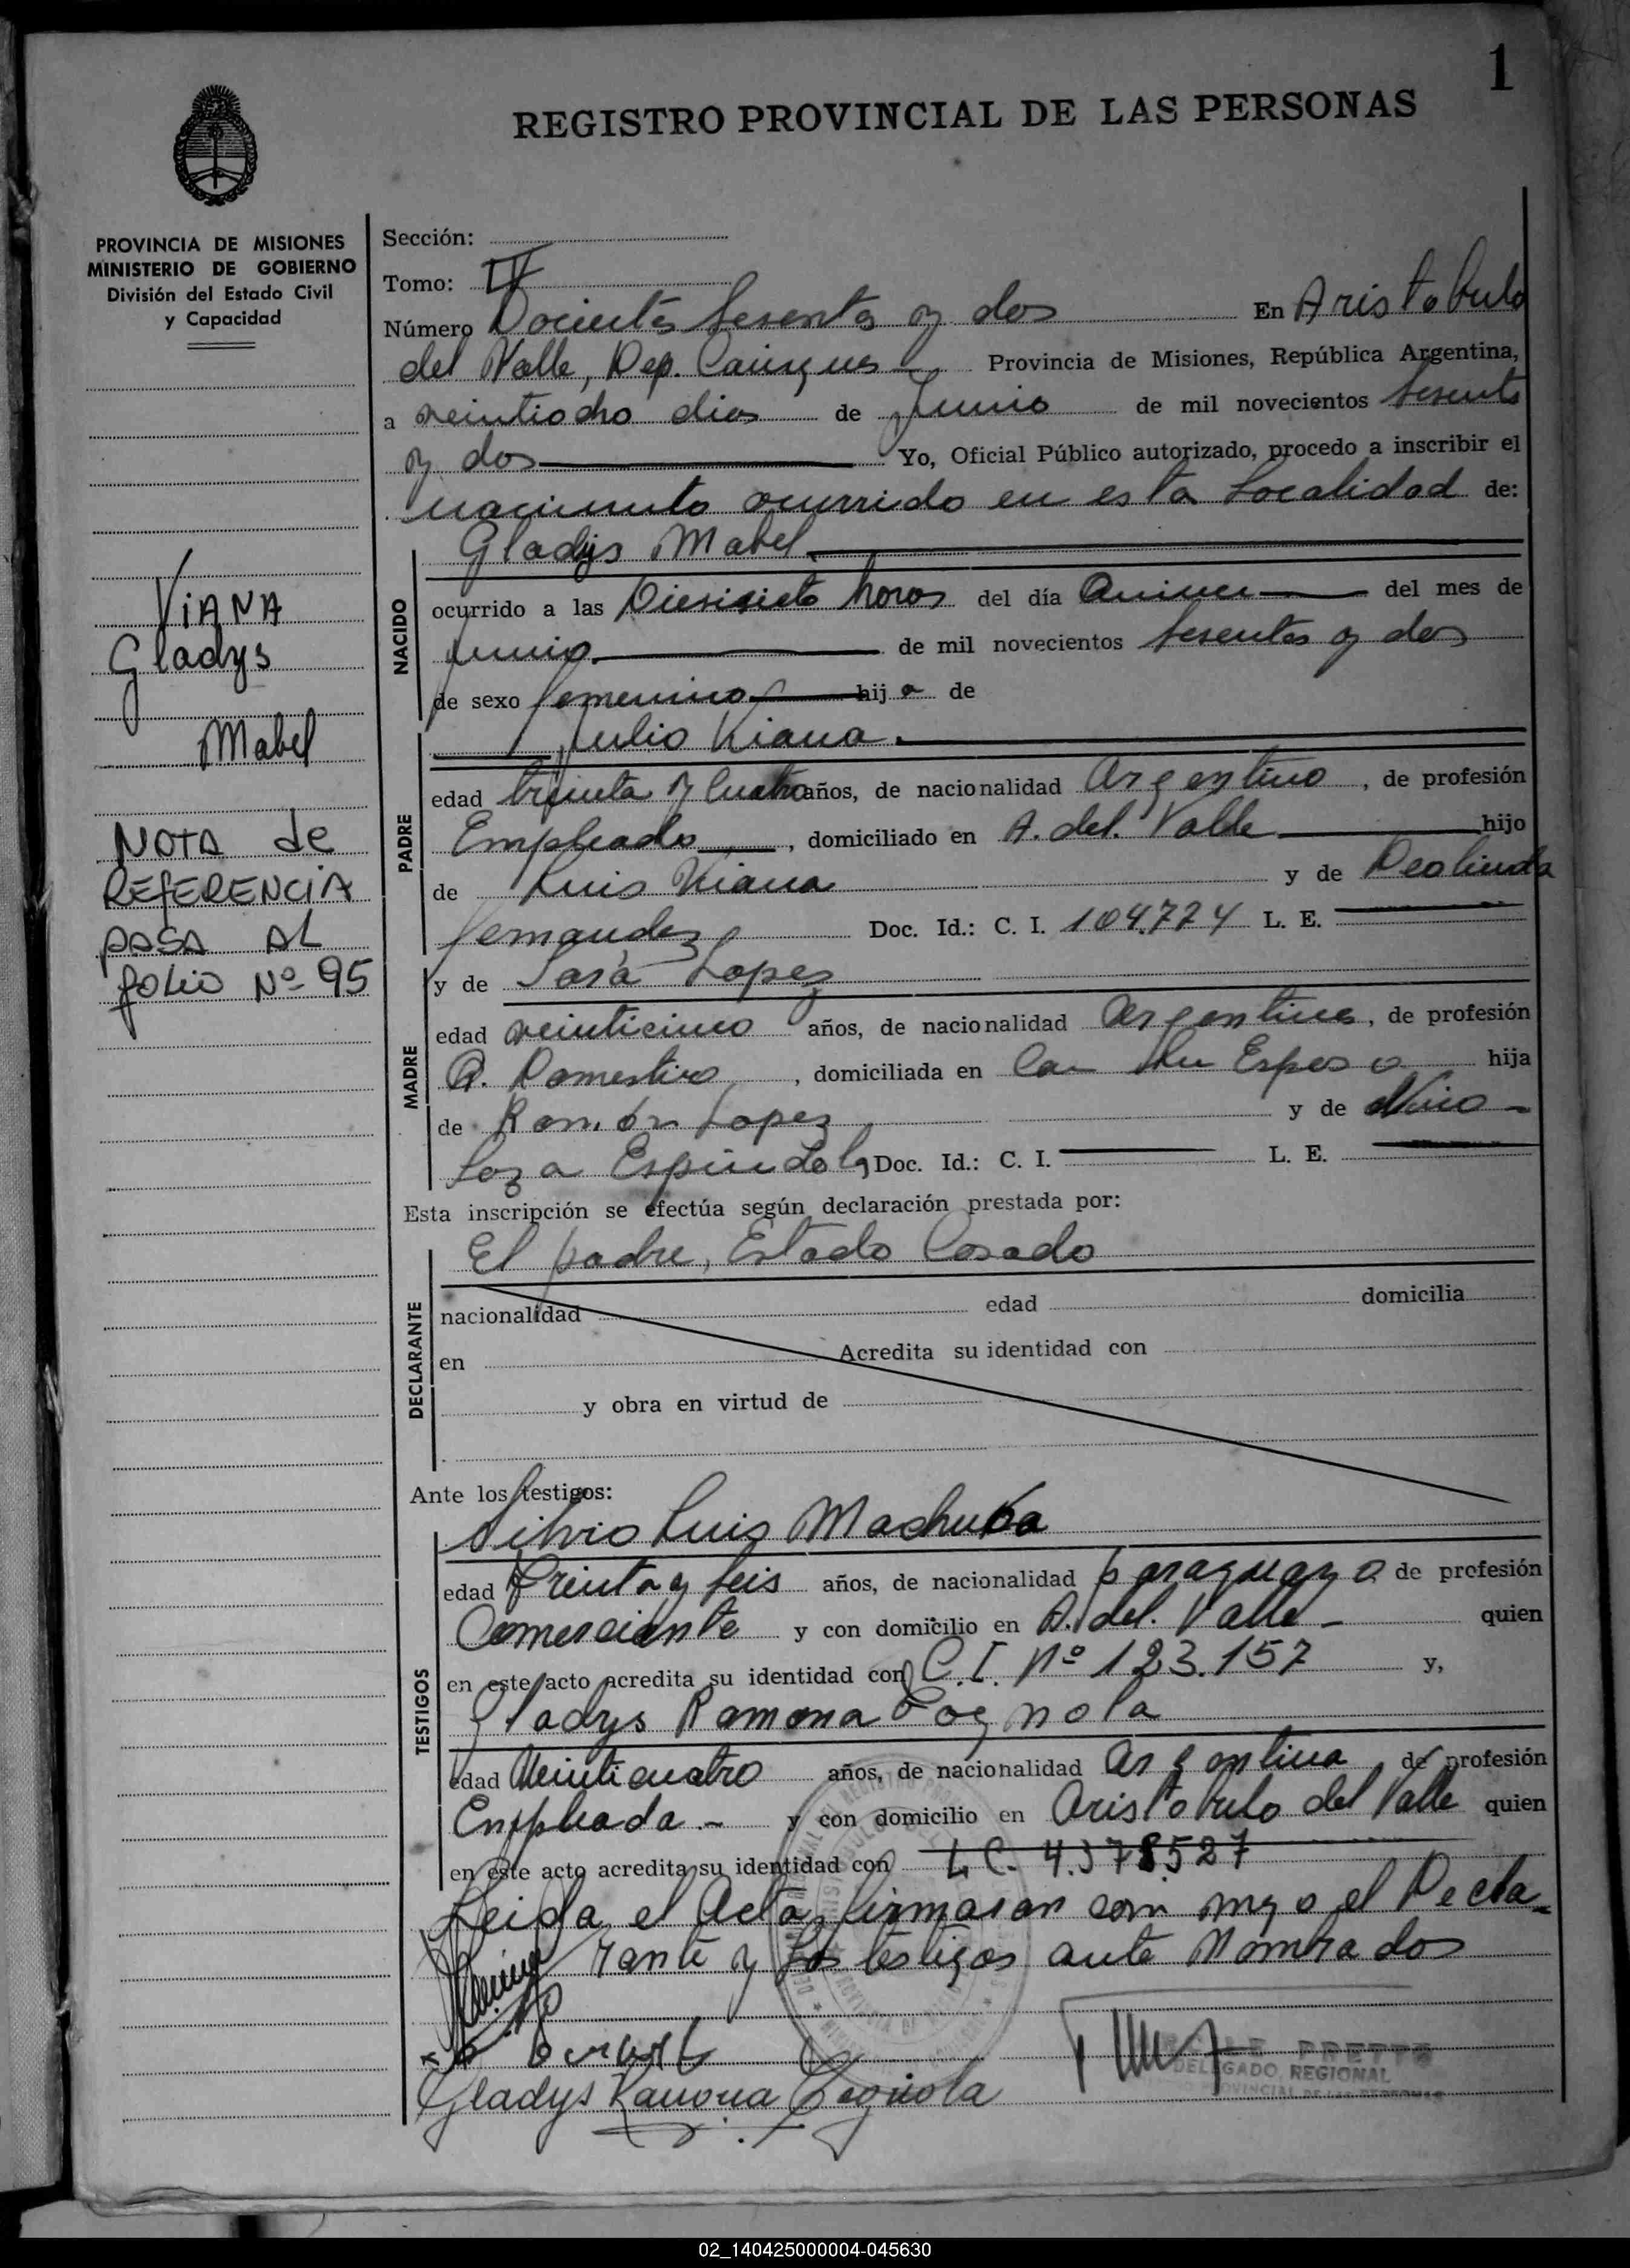 1
REGISTRO PROVINCIAL DE LAS PERSONAS
PROVINCIA DE MISIONES
MINISTERIO DE GOBIERNO
División del Estado Civil
y Capacidad
VIANA
Gladys
Mabel
NOTA de
REFERENCIA
PASA AL
folio Nº 95
Sección:
Tomo: II
Número Docientos Sesenta y dos En Aristobulo
del Valle, Dep. Cainguas Provincia de Misiones, República Argentina,
a veintiocho dias de Junio de mil novecientos sesenta
y dos Yo, Oficial Público autorizado, procedo a inscribir el
nacimiento ocurrido en esta Localidad de:
Gladys Mabel
NACIDO
ocurrido a las Diesisiete horas del día Quince del mes de
Junio de mil novecientos sesenta y dos
de sexo femenino hija de
Julio Viana
PADRE
edad treinta y cuatro años, de nacionalidad Argentino, de profesión
Empleado, domiciliado en A. del Valle hijo
de Luis Viana y de Deolinda
Fernandez Doc. Id.: C. I. 104.774 L. E.
y de Sara Lopez
MADRE
edad veinticinco años, de nacionalidad Argentina, de profesión
Q. Domestico, domiciliada en Con su Esposo hija
de Ramón Lopez y de
Espindola Doc. Id.: C. I. L. E.
Esta inscripción se efectúa según declaración prestada por:
El padre, Estado Casado
DECLARANTE
nacionalidad edad domicilia
en Acredita su identidad con
y obra en virtud de
Ante los testigos:
Silvio Luis Machuca
TESTIGOS
edad Treinta y seis años, de nacionalidad paraguaya de profesión
Comerciante y con domicilio en A. del. Valle - quien
en este acto acredita su identidad con C.I. Nº 123.157 y,
Gladys Ramona Cognola
edad Veinticuatro años, de nacionalidad Argentina, de profesión
Empleada.- y con domicilio en Aristobulo del Valle quien
en este acto acredita su identidad con L C. 4.378527
Leida el Acta, firmaron con migo el Decla-
rante y los testigos ante Nombrados
Gladys Ramona Cognola
PRETTO
DELEGADO REGIONAL
PROVINCIAL DE LAS PERSONAS
02_140425000004-045630